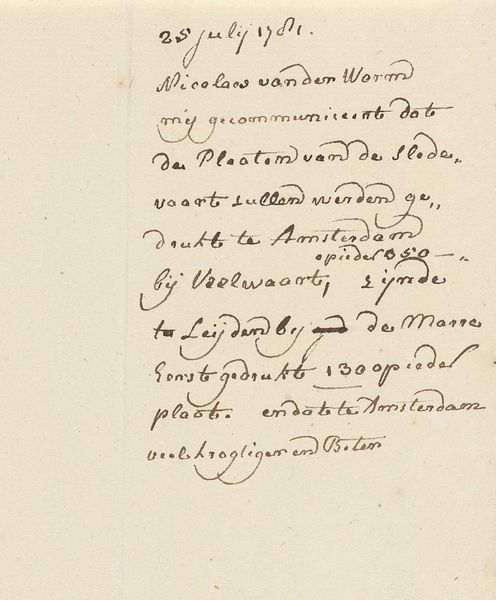 25 julij 1781.
Nicolaas van der Worm
mij gecommuniceert dat
de Plaaten van de Slede„
vaart sullen werden ge„
drukt te Amsterdam
op ieder 350 —„
bij Veelwaart, zijnde
te Leijden by de Marre
Eerst gedrukt 1300 p ieder
plaat. en dat te Amsterdam
veel kragtiger en Beter